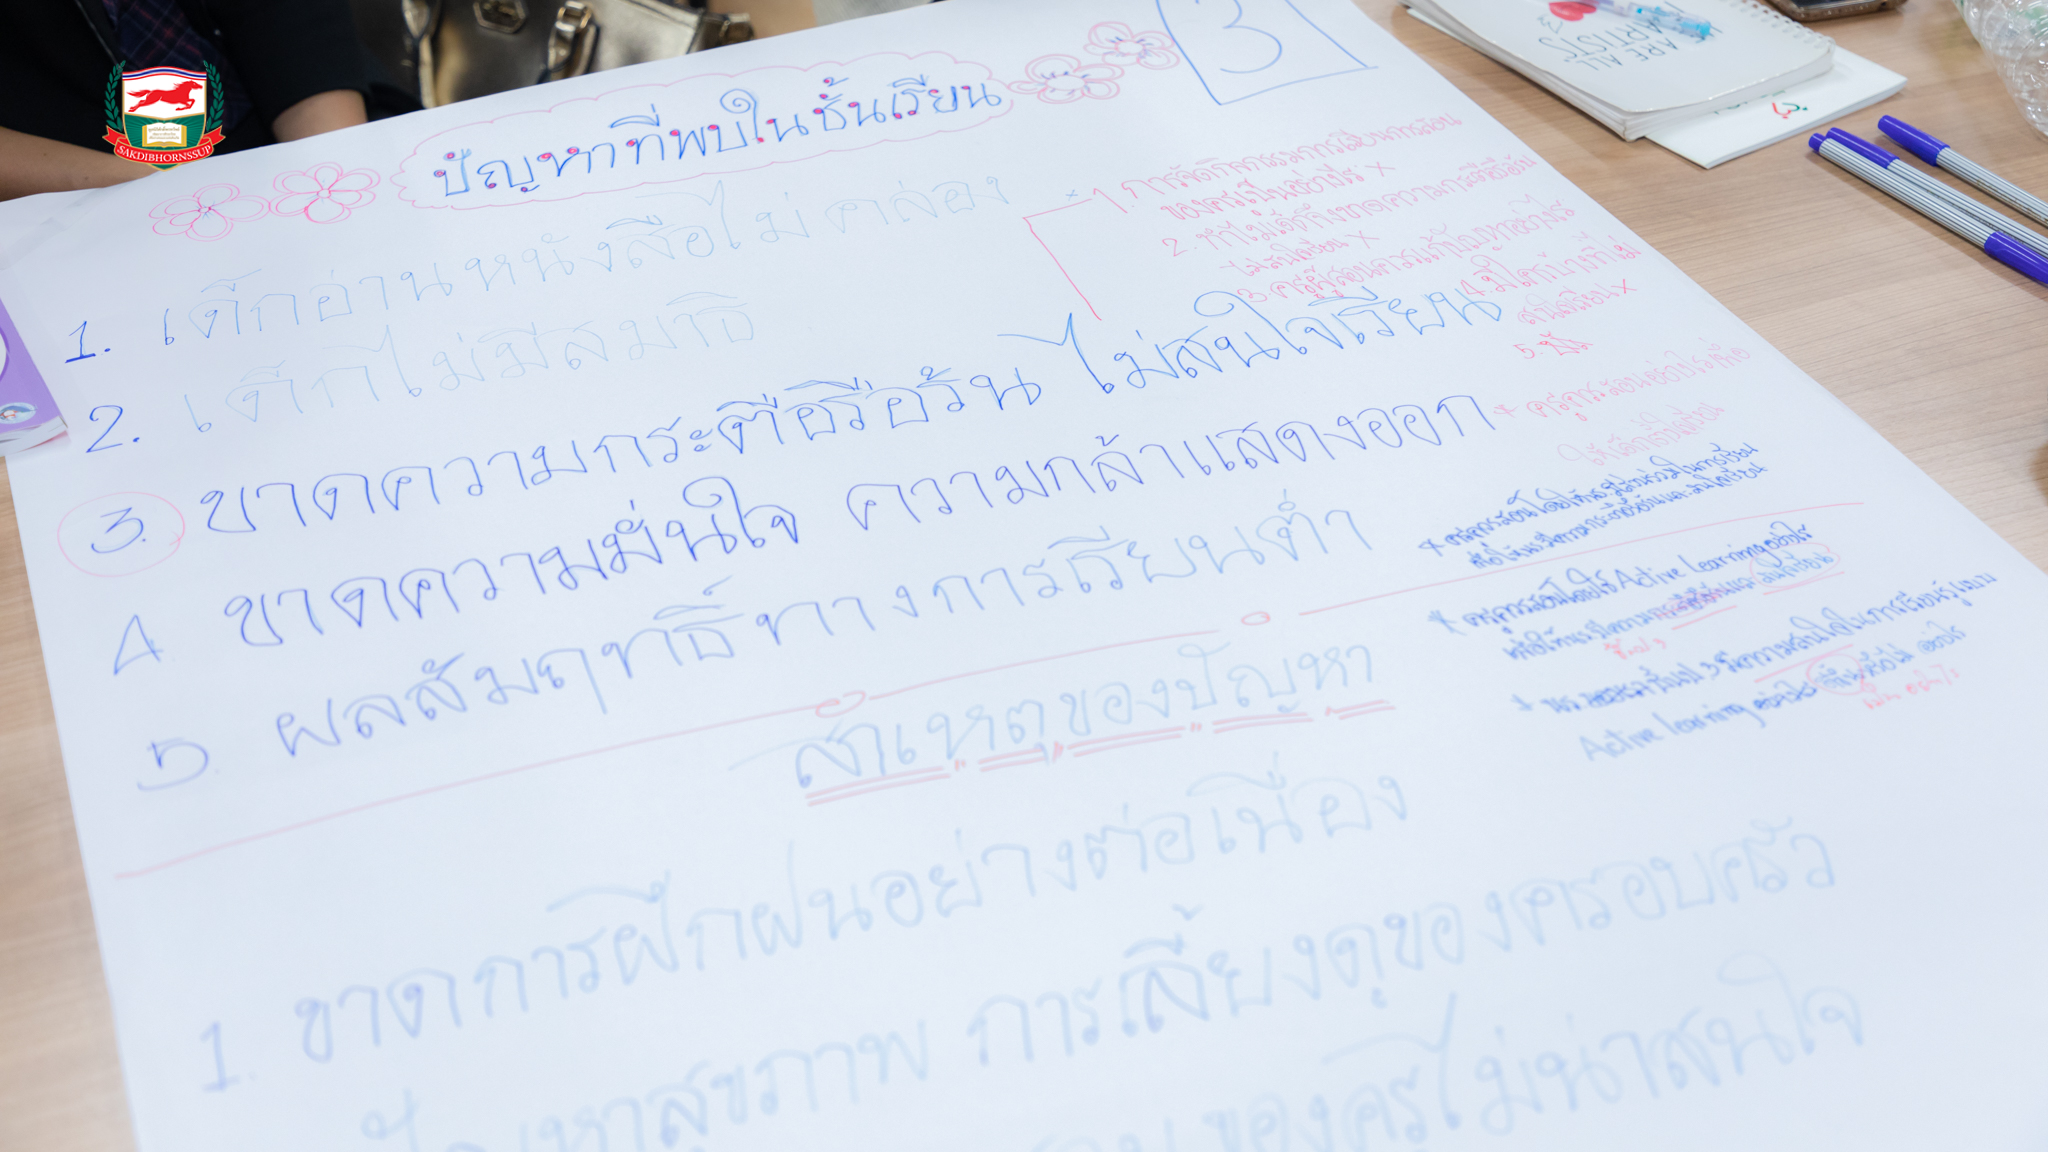 3
ปัญหาที่พบในชั้นเรียน
1. เด็กอ่านหนังสือไม่คล่อง
2. เด็กไม่มีสมาธิ
3. ขาดความกระตือรือร้น ไม่สนใจเรียน
4 ขาดความมั่นใจ ความกล้าแสดงออก
5 ผลสัมฤทธิ์ทางการเรียนต่ำ
1. การจัดกิจกรรมการเรียนการสอน
ของครูเป็นอย่างไร x
2. ทำไมเด็กถึงขาดความกระตือรือร้น
ไม่สนใจเรียน x
3. ครูผู้สอนควรแก้ปัญหาอย่างไร
4. มีใครบ้างที่ไม่
สนใจเรียน x
5.
* ครูควรสอนอย่างไรเพื่อ
ให้เด็ก
* ครูควรสอนโดยใช้ Active Learning อย่างไร
ชั้น ป.3
ป.3 มีความสนใจในการเรียนรู้แบบ
Active learning
สาเหตุของปัญหา
1. ขาดการฝึกฝนอย่างต่อเนื่อง
ปัญหาสุขภาพ การเลี้ยงดูของครอบครัว
ของครูไม่น่าสนใจ
SAKDIBHORNSSUP
WE ARE ALL
ARTISTS